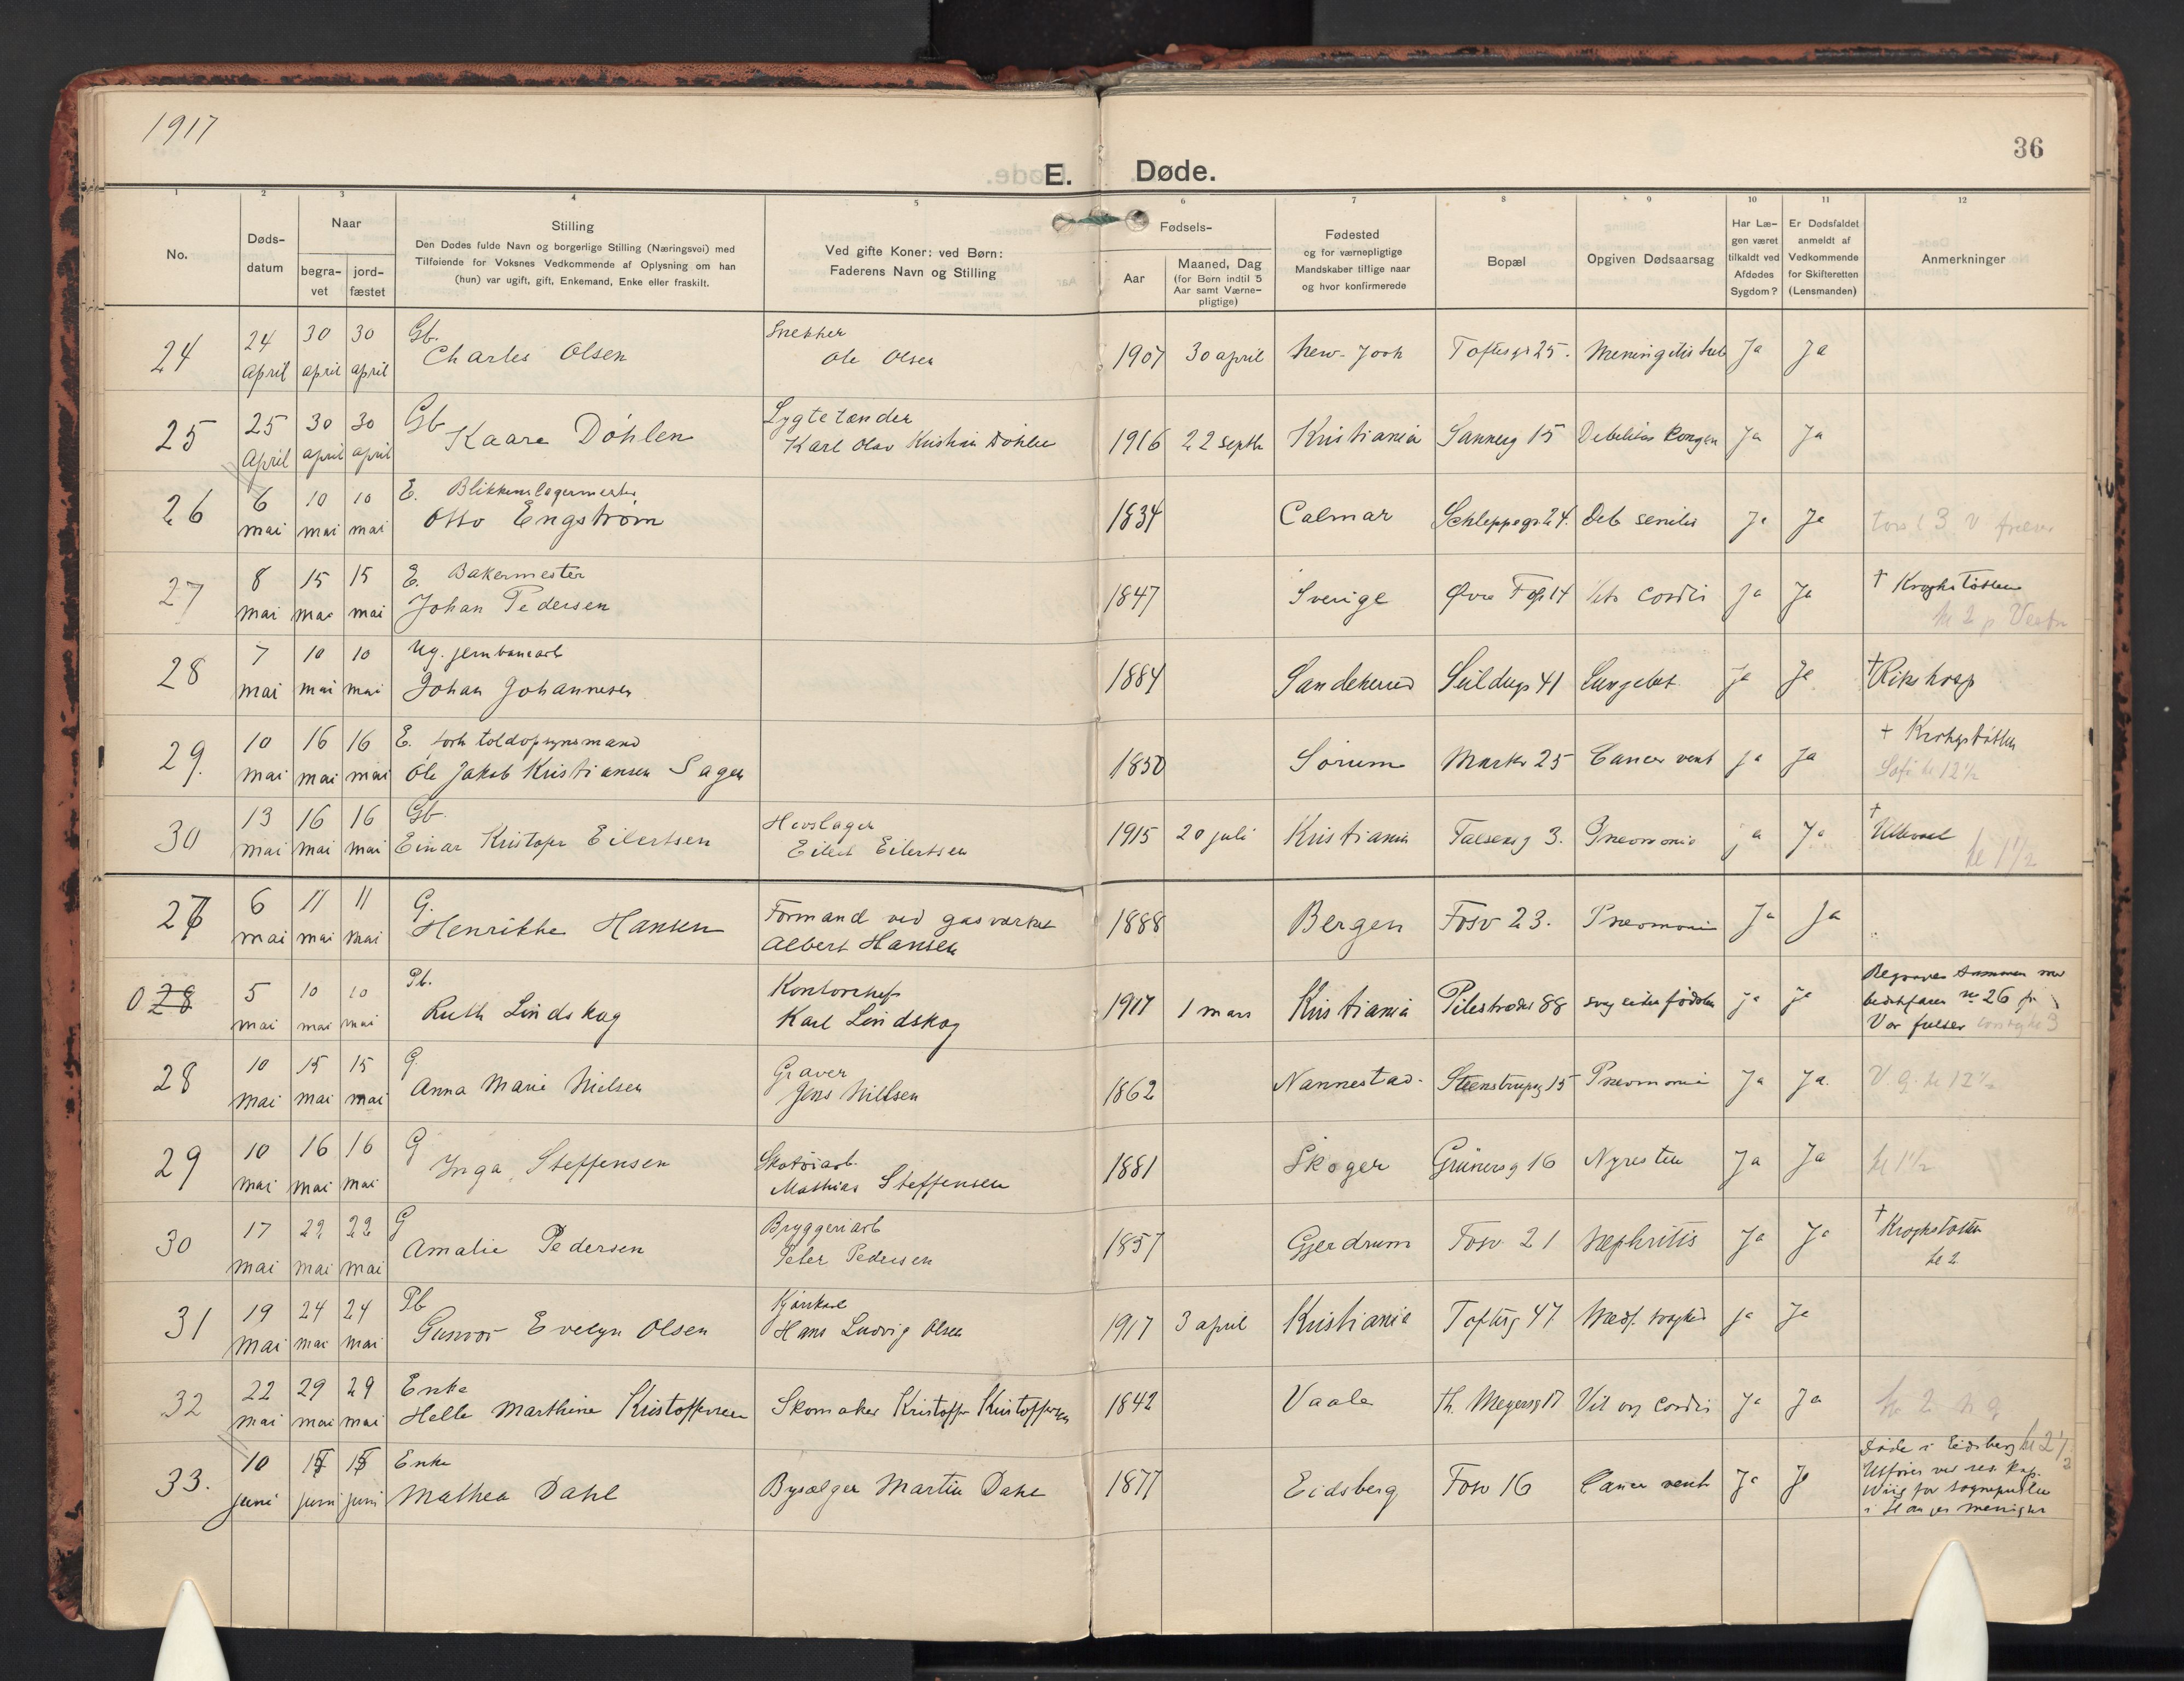 1917
36
E. Døde.
1 2 3 4 5 6 7 8 9 10 11 12
No.
Døds-
datum
Naar
begra-
vet
jord-
fæstet
Stilling
Den Dødes fulde Navn og borgerlige Stilling (Næringsvei) med
Tilføiende for Voksnes Vedkommende af Oplysning om han
(hun) var ugift, gift, Enkemand, Enke eller fraskilt.
Ved gifte Koner: ved Børn:
Faderens Navn og Stilling
Fødsels-
Aar
Maaned, Dag
(for Børn indtil 5
Aar samt Værne-
pligtige)
Fødested
og for værnepligtige
Mandskaber tillige naar
og hvor konfirmerede
Bopæl
Opgiven Dødsaarsag
Har Læ-
gen været
tilkaldt ved
Afdødes
Sygdom?
Er Dødsfaldet
anmeldt af
Vedkommende
for Skifteretten
(Lensmanden)
Anmerkninger
24 24 april 30 april 30 april Gb. Charles Olsen Snekker Ole Olsen 1907 30 april New-York Toftesgt 25. Meningitis tub Ja Ja
25 25 April 30 april 30 april Gb Kaare Döhlen Lygtetænder Karl Olav Kristian Döhlen 1916 22 septbr Kristiania Sannerg 15 Debilitas kongen Ja Ja
26 6 mai 10 mai 10 mai E. Blikkenslagermester Otto Engström 1834 Calmar Schleppegr 24. Deb senilis Ja Ja
27 8 mai 15 mai 15 mai E. Bakermester Johan Pedersen 1847 Sverige Øvre Fossgt 14 cordis Ja Ja † Kroghstøtten kl 2
28 7 mai 10 mai 10 mai Ug. jernbanearb Johan Johannesen 1884 Sandeherred Seildugs 41 Lungebet. Ja Ja † Rikshosp
29. 10 mai 16 mai 16 mai E. forh toldopsynsmand Ole Jakob Kristiansen Sagen 1850 Sörum Markv 25 Cancer vent Ja Ja + Krohgstøtten Sofi kl 12½
30 13 mai 16 mai 16 mai Gb. Einar Kristofer Eilertsen Hovslager Eilert Eilertsen 1915 20 juli Kristiania Falsensg 3. Pneomonia Ja Ja † Ullevaal kl 1½
27 6 mai 11 mai 11 mai G. Henrikke Hansen Formand ved gasverket Albert Hansen 1888 Bergen Fosv 23. Pneomoni Ja Ja
0 28 5 mai 10 mai 10 mai Pb. Ruth Lindskog Kontorchef Karl Lindskog 1917 1 mars Kristiania Pilestrædet 88 svag siden födselen ja ja Begraves sammen med bedstefaren nr 26 fr Vor frelser
28 10 mai 15 mai 15 mai G. Anna Marie Nielsen Graver Jens Nielsen 1862 Nannestad. Steenstrupsg 15 Pneomoni Ja Ja. V. g. kl 12½
29 10 mai 16 mai 16 mai G Inga Steffensen Skotöiarb. Mathias Steffensen 1881 Skoger Grünersg 16 Nyresten Ja Ja kl 1½
30 17 mai 22 mai 22 mai G Amalie Pedersen Bryggeriarb Peter Pedersen 1857 Gjerdrum Fosv 21 Nephritis Ja Ja † Krogstøtten kl 2
31 19 mai 24 mai 24 mai Pb Gunvor Evelyn Olsen Kjörekarl Hans Ludvig Olsen 1917 3 april Kristiania Toftesg 47 Medf. svaghed Ja Ja
32 22 mai 29 mai 29 mai Enke Helle Marthine Kristoffersen Skomaker Kristoffer Kristoffersen 1842 Vaale Th. Meyersg 17 Vit org cordis Ja Ja kl 2
33. 10 juni 15 juni 15 juni Enke Mathea Dahl Bysælger Martin Dahl 1877 Eidsberg Fosv 16 Cancer vent Ja Ja Døde i Eidsberg kl 2½ Utføres ved res. kap. Wiig for sognepresten i Hauges menighet